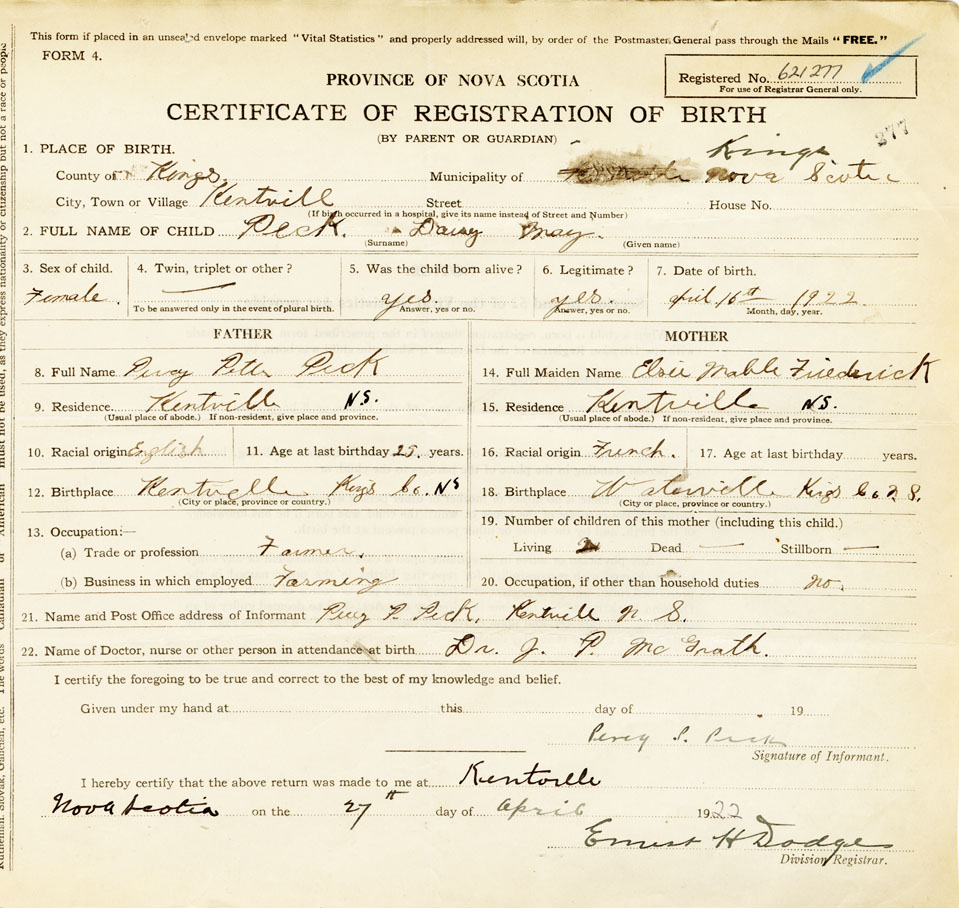 This form if placed in an unsealed envelope marked "Vital Statistics" and properly addressed will, by order of the Postmaster General pass through the Mails "FREE."
FORM 4.
PROVINCE OF NOVA SCOTIA
Registered No. 621277
For use of Registrar General only.
CERTIFICATE OF REGISTRATION OF BIRTH
(BY PARENT OR GUARDIAN)
277
1. PLACE OF BIRTH.
Kings
County of Kings. Municipality of Nova Scotia
City, Town or Village Kentvill Street House No.
(If birth occurred in a hospital, give its name instead of Street and Number)
2. FULL NAME OF CHILD Peck. Daisy May.
(Surname) (Given name)
3. Sex of child. 4. Twin, triplet or other? 5. Was the child born alive? 6. Legitimate? 7. Date of birth.
Female. — yes. yes. April 16th 1922
To be answered only in the event of plural birth. Answer, yes or no. Answer, yes or no. Month, day, year.
FATHER MOTHER
8. Full Name Percy Peter Peck 14. Full Maiden Name Elsie Mable Friederick
9. Residence Kentville N.S. 15. Residence Kentville N.S.
(Usual place of abode.) If non-resident, give place and province. (Usual place of abode.) If non-resident, give place and province.
10. Racial origin English 11. Age at last birthday 25. years. 16. Racial origin French. 17. Age at last birthday years.
12. Birthplace Kentville Kings Co. NS 18. Birthplace Waterville Kings Co N.S.
(City or place, province or country.) (City or place, province or country.)
13. Occupation:— 19. Number of children of this mother (including this child.)
(a) Trade or profession Farmer. Living Dead — Stillborn —
(b) Business in which employed Farming 20. Occupation, if other than household duties no.
21. Name and Post Office address of Informant Percy P. Peck, Kentvill N S.
22. Name of Doctor, nurse or other person in attendance at birth Dr. J. P. McGrath.
I certify the foregoing to be true and correct to the best of my knowledge and belief.
Given under my hand at this day of 19
Percy P. Peck
Signature of Informant.
I hereby certify that the above return was made to me at Kentville
Nova Scotia on the 27th day of April 1922
Ernest H Dodge
Division Registrar.
Ruthenian, Slovak, Galician, etc. The words Canadian or American must not be used, as they express nationality or citizenship but not a race or people